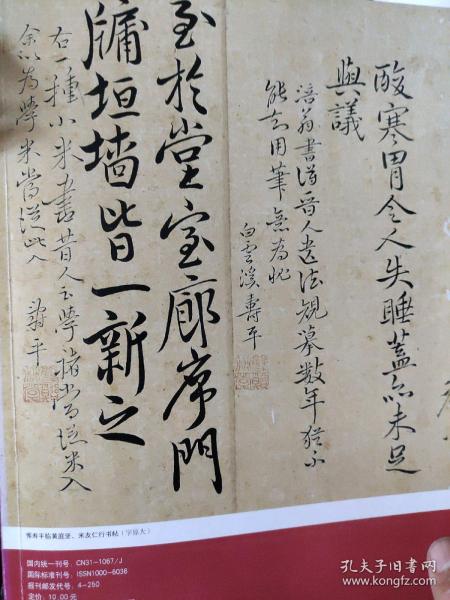 酸寒胃令人失睡蓋亦未足
與議
涪翁書得昔人遺法規摹数年猶不
能知用筆無為
白雲溪壽平
至於堂室廊序門
牖垣墙皆一新之
右一種小米書昔人
余以為學米當從此入
壽平
恽寿平临黄庭坚、米友仁行书帖（字原大）
国内统一刊号：CN31-1067/J
国际标准刊号：ISSN1000-6036
报刊邮发代号：4-250
定价：10.00元
孔夫子旧书网